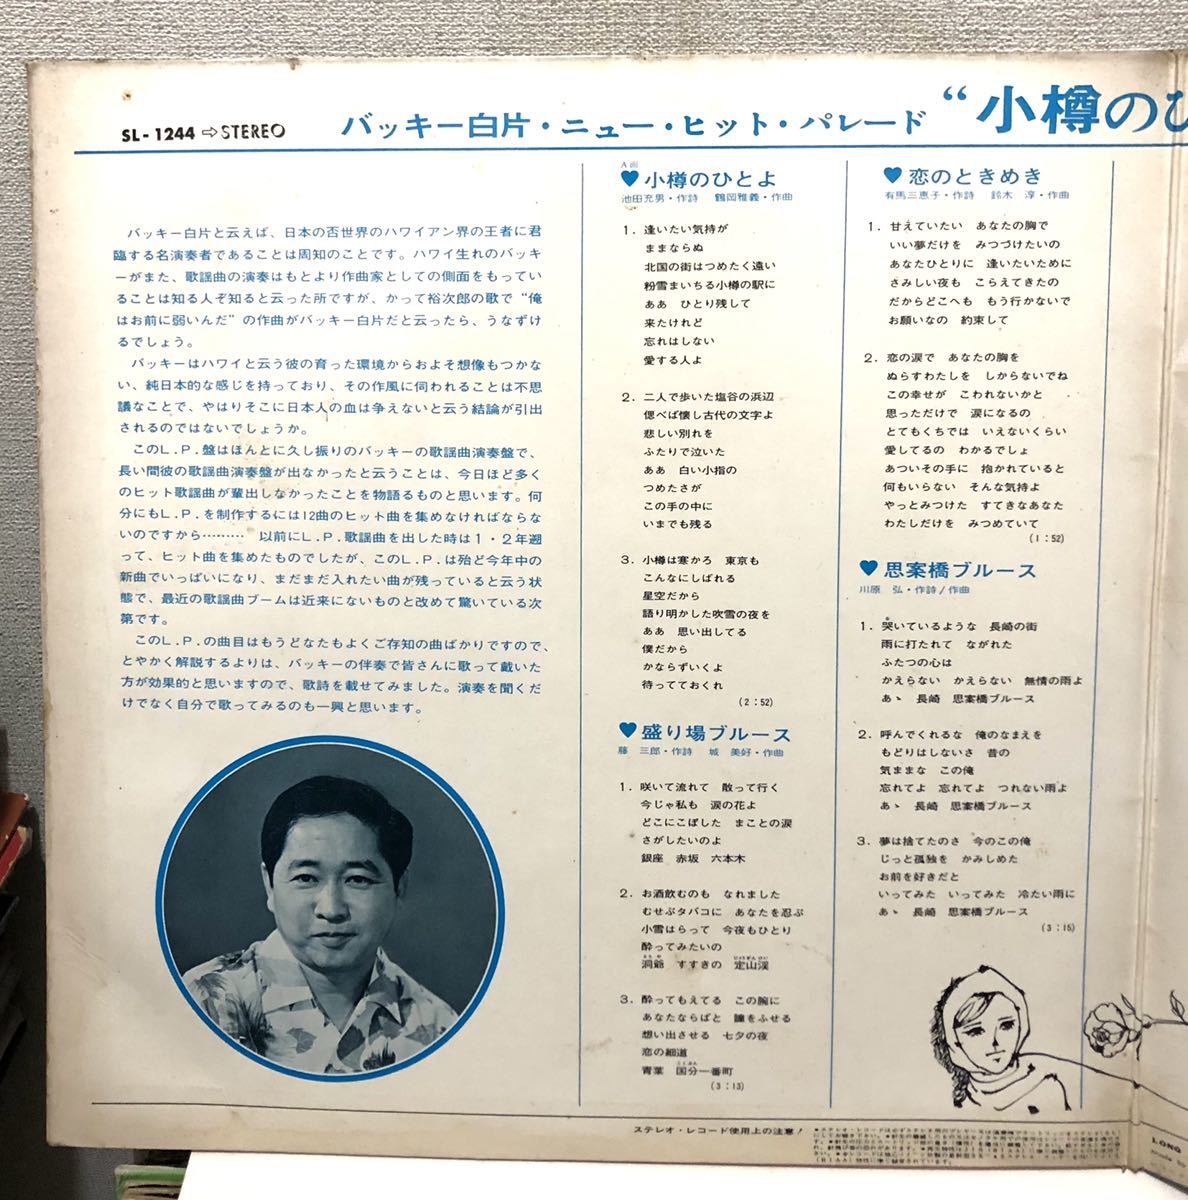 SL-1244⇨STEREO
バッキー白片・ニュー・ヒット・パレード
“小樽のひ
バッキー白片と云えば、日本の否世界のハワイアン界の王者に君
臨する名演奏者であることは周知のことです。ハワイ生れのバッキ
ーがまた、歌謡曲の演奏はもとより作曲家としての側面をもってい
ることは知る人ぞ知ると云った所ですが、かって裕次郎の歌で“俺
はお前に弱いんだ”の作曲がバッキー白片だと云ったら、うなずけ
るでしょう。
バッキーはハワイと云う彼の育った環境からおよそ想像もつかな
い、純日本的な感じを持っており、その作風に伺われることは不思
議なことで、やはりそこに日本人の血は争えないと云う結論が引出
されるのではないでしょうか。
このL.P.盤はほんとに久し振りのバッキーの歌謡曲演奏盤で、
長い間彼の歌謡曲演奏盤が出なかったと云うことは、今日ほど多く
のヒット歌謡曲が輩出しなかったことを物語るものと思います。何
分にもL.P.を制作するには12曲のヒット曲を集めなければならな
いのですから……… 以前にL.P.歌謡曲を出した時は1・2年遡
って、ヒット曲を集めたものでしたが、このL.P.は殆ど今年中の
新曲でいっぱいになり、まだまだ入れたい曲が残っていると云う状
態で、最近の歌謡曲ブームは近来にないものと改めて驚いている次
第です。
このL.P.の曲目はもうどなたもよくご存知の曲ばかりですので、
とやかく解説するよりは、バッキーの伴奏で皆さんに歌って戴いた
方が効果的と思いますので、歌詩を載せてみました。演奏を聞くだ
けでなく自分で歌ってみるのも一興と思います。
A面
♥小樽のひとよ
池田充男・作詩 鶴岡雅義・作曲
1. 逢いたい気持が
ままならぬ
北国の街はつめたく遠い
粉雪まいちる小樽の駅に
ああ ひとり残して
来たけれど
忘れはしない
愛する人よ
2. 二人で歩いた塩谷の浜辺
偲べば懐し古代の文字よ
悲しい別れを
ふたりで泣いた
ああ 白い小指の
つめたさが
この手の中に
いまでも残る
3. 小樽は寒かろ 東京も
こんなにしばれる
星空だから
語り明かした吹雪の夜を
ああ 思い出してる
僕だから
かならずいくよ
待ってておくれ
(2:52)
♥盛り場ブルース
藤 三郎・作詩 城 美好・作曲
1. 咲いて流れて 散って行く
今じゃ私も 涙の花よ
どこにこぼした まことの涙
さがしたいのよ
銀座 赤坂 六本木
2. お酒飲むのも なれました
むせぶタバコに あなたを忍ぶ
小雪はらって 今夜もひとり
酔ってみたいの
洞爺 すすきの 定山渓
3. 酔ってもえてる この腕に
あなたならばと 瞳をふせる
想い出させる 七夕の夜
恋の細道
青葉 国分一番町
(3:13)
♥恋のときめき
有馬三恵子・作詩 鈴木 淳・作曲
1. 甘えていたい あなたの胸で
いい夢だけを みつづけたいの
あなたひとりに 逢いたいために
さみしい夜も こらえてきたの
だからどこへも もう行かないで
お願いなの 約束して
2. 恋の涙で あなたの胸を
ぬらすわたしを しからないでね
この幸せが こわれないかと
思っただけで 涙になるの
とてもくちでは いえないくらい
愛してるの わかるでしょ
あついその手に 抱かれていると
何もいらない そんな気持よ
やっとみつけた すてきなあなた
わたしだけを みつめていて
(1:52)
♥思案橋ブルース
川原 弘・作詩/作曲
1. 哭いているような 長崎の街
雨に打たれて ながれた
ふたつの心は
かえらない かえらない 無情の雨よ
あゝ 長崎 思案橋ブルース
2. 呼んでくれるな 俺のなまえを
もどりはしないさ 昔の
気ままな この俺
忘れてよ 忘れてよ つれない雨よ
あゝ 長崎 思案橋ブルース
3. 夢は捨てたのさ 今のこの俺
じっと孤独を かみしめた
お前を好きだと
いってみた いってみた 冷たい雨に
あゝ 長崎 思案橋ブルース
(3:15)
ステレオ・レコード使用上の注意!
LONG